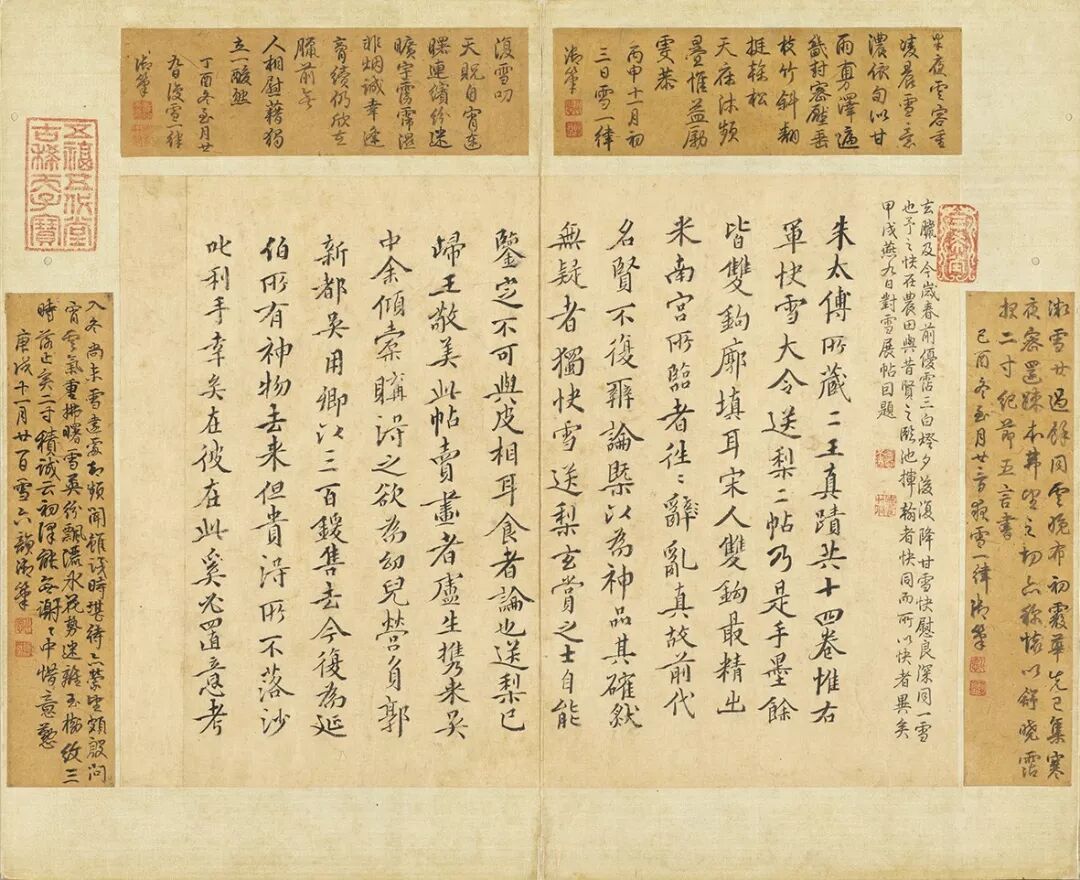 半夜雲容重
凌晨雪意
濃依旬以甘
雨 澤遍
畿封密壓垂
枝竹斜翻
挺榦松
天庥沐頻
疊惟益勵
恭
丙申十一月初
三日雪一律
御筆
復雪叨
天貺自宵達
曙連繽紛迷
曠宇霑霈湿
非烟誠幸逢
膏續仍欣在
臘前無
人相慰藉獨
立一酸然
丁酉冬至月廿
九日復雪一律
御筆
雪廿過餘同雲晚布初霰華先已集寒
夜密還疎本冀望之切亦稱懷以舒曉霑
報二寸紀節五言書
己酉冬至月廿 夜雪一律御筆
玄臘及今歲春前優霑三白燈夕後復降甘雪快慰良深同一雪
也予之快在農田與昔賢之臨池揮翰者快同而所以快者異矣
甲戌燕九日對雪展帖因題
朱太傅所藏二王真蹟共十四卷惟右
軍快雪大令送梨二帖乃是手墨餘
皆雙鉤廓填耳宋人雙鉤最精出
米南宮所臨者往〻辭亂真故前代
名賢不復辨論槩以為神品其確然
無疑者獨快雪送梨玄賞之士自能
鑒定不可與皮相耳食者論也送梨已
歸王敬美此帖賣畫者盧生攜來吳
中余傾橐購得之欲為幼兒營負郭
新都吳用卿以三百鍰售去今復為延
伯所有神物去來但貴得所不落沙
叱利手幸矣在彼在此奚必置意考
入冬尚未雪遠處却頻聞雖識時堪待亦縈望頗殷向
宵雲氣重拂曙雪英紛飄灑氷花勢迷離玉樹紋三
時落止亥二寸積誠云初澤能無謝〻中惜意懃
庚戌十一月廿一日雪六韻御筆
五福五代堂
古稀天子寶